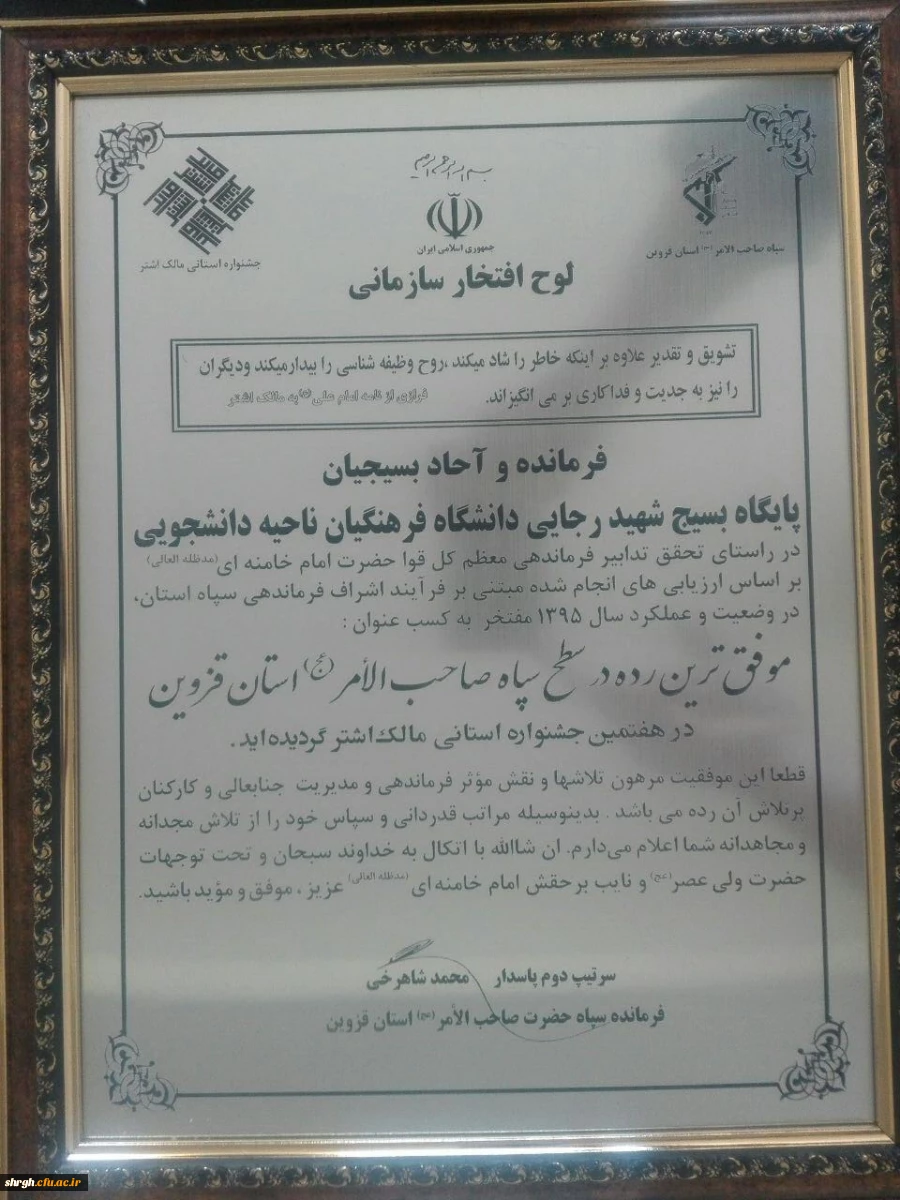 بسم الله الرحمن الرحیم
جمهوری اسلامی ایران
سپاه صاحب الامر (عج) استان قزوین
جشنواره استانی مالک اشتر
لوح افتخار سازمانی
تشویق و تقدیر علاوه بر اینکه خاطر را شاد میکند ،روح وظیفه شناسی را بیدارمیکند ودیگران
را نیز به جدیت و فداکاری بر می انگیزاند. فرازی از نامه امام علی (ع) به مالک اشتر
فرمانده و آحاد بسیجیان
پایگاه بسیج شهید رجایی دانشگاه فرهنگیان ناحیه دانشجویی
در راستای تحقق تدابیر فرماندهی معظم کل قوا حضرت امام خامنه ای (مدظله العالی)
بر اساس ارزیابی های انجام شده مبتنی بر فرآیند اشراف فرماندهی سپاه استان،
در وضعیت و عملکرد سال ۱۳۹۵ مفتخر به کسب عنوان :
موفق ترین رده در سطح سپاه صاحب الأمر (عج) استان قزوین
در هفتمین جشنواره استانی مالک اشتر گردیده اید.
قطعا این موفقیت مرهون تلاشها و نقش مؤثر فرماندهی و مدیریت جنابعالی و کارکنان
پرتلاش آن رده می باشد . بدینوسیله مراتب قدردانی و سپاس خود را از تلاش مجدانه
و مجاهدانه شما اعلام می‌دارم. ان شاالله با اتکال به خداوند سبحان و تحت توجهات
حضرت ولی عصر (عج) و نایب برحقش امام خامنه ای (مدظله العالی) عزیز ، موفق و مؤید باشید.
سرتیپ دوم پاسدار محمد شاهرخی
فرمانده سپاه حضرت صاحب الأمر (عج) استان قزوین
shrgh.cfu.ac.ir